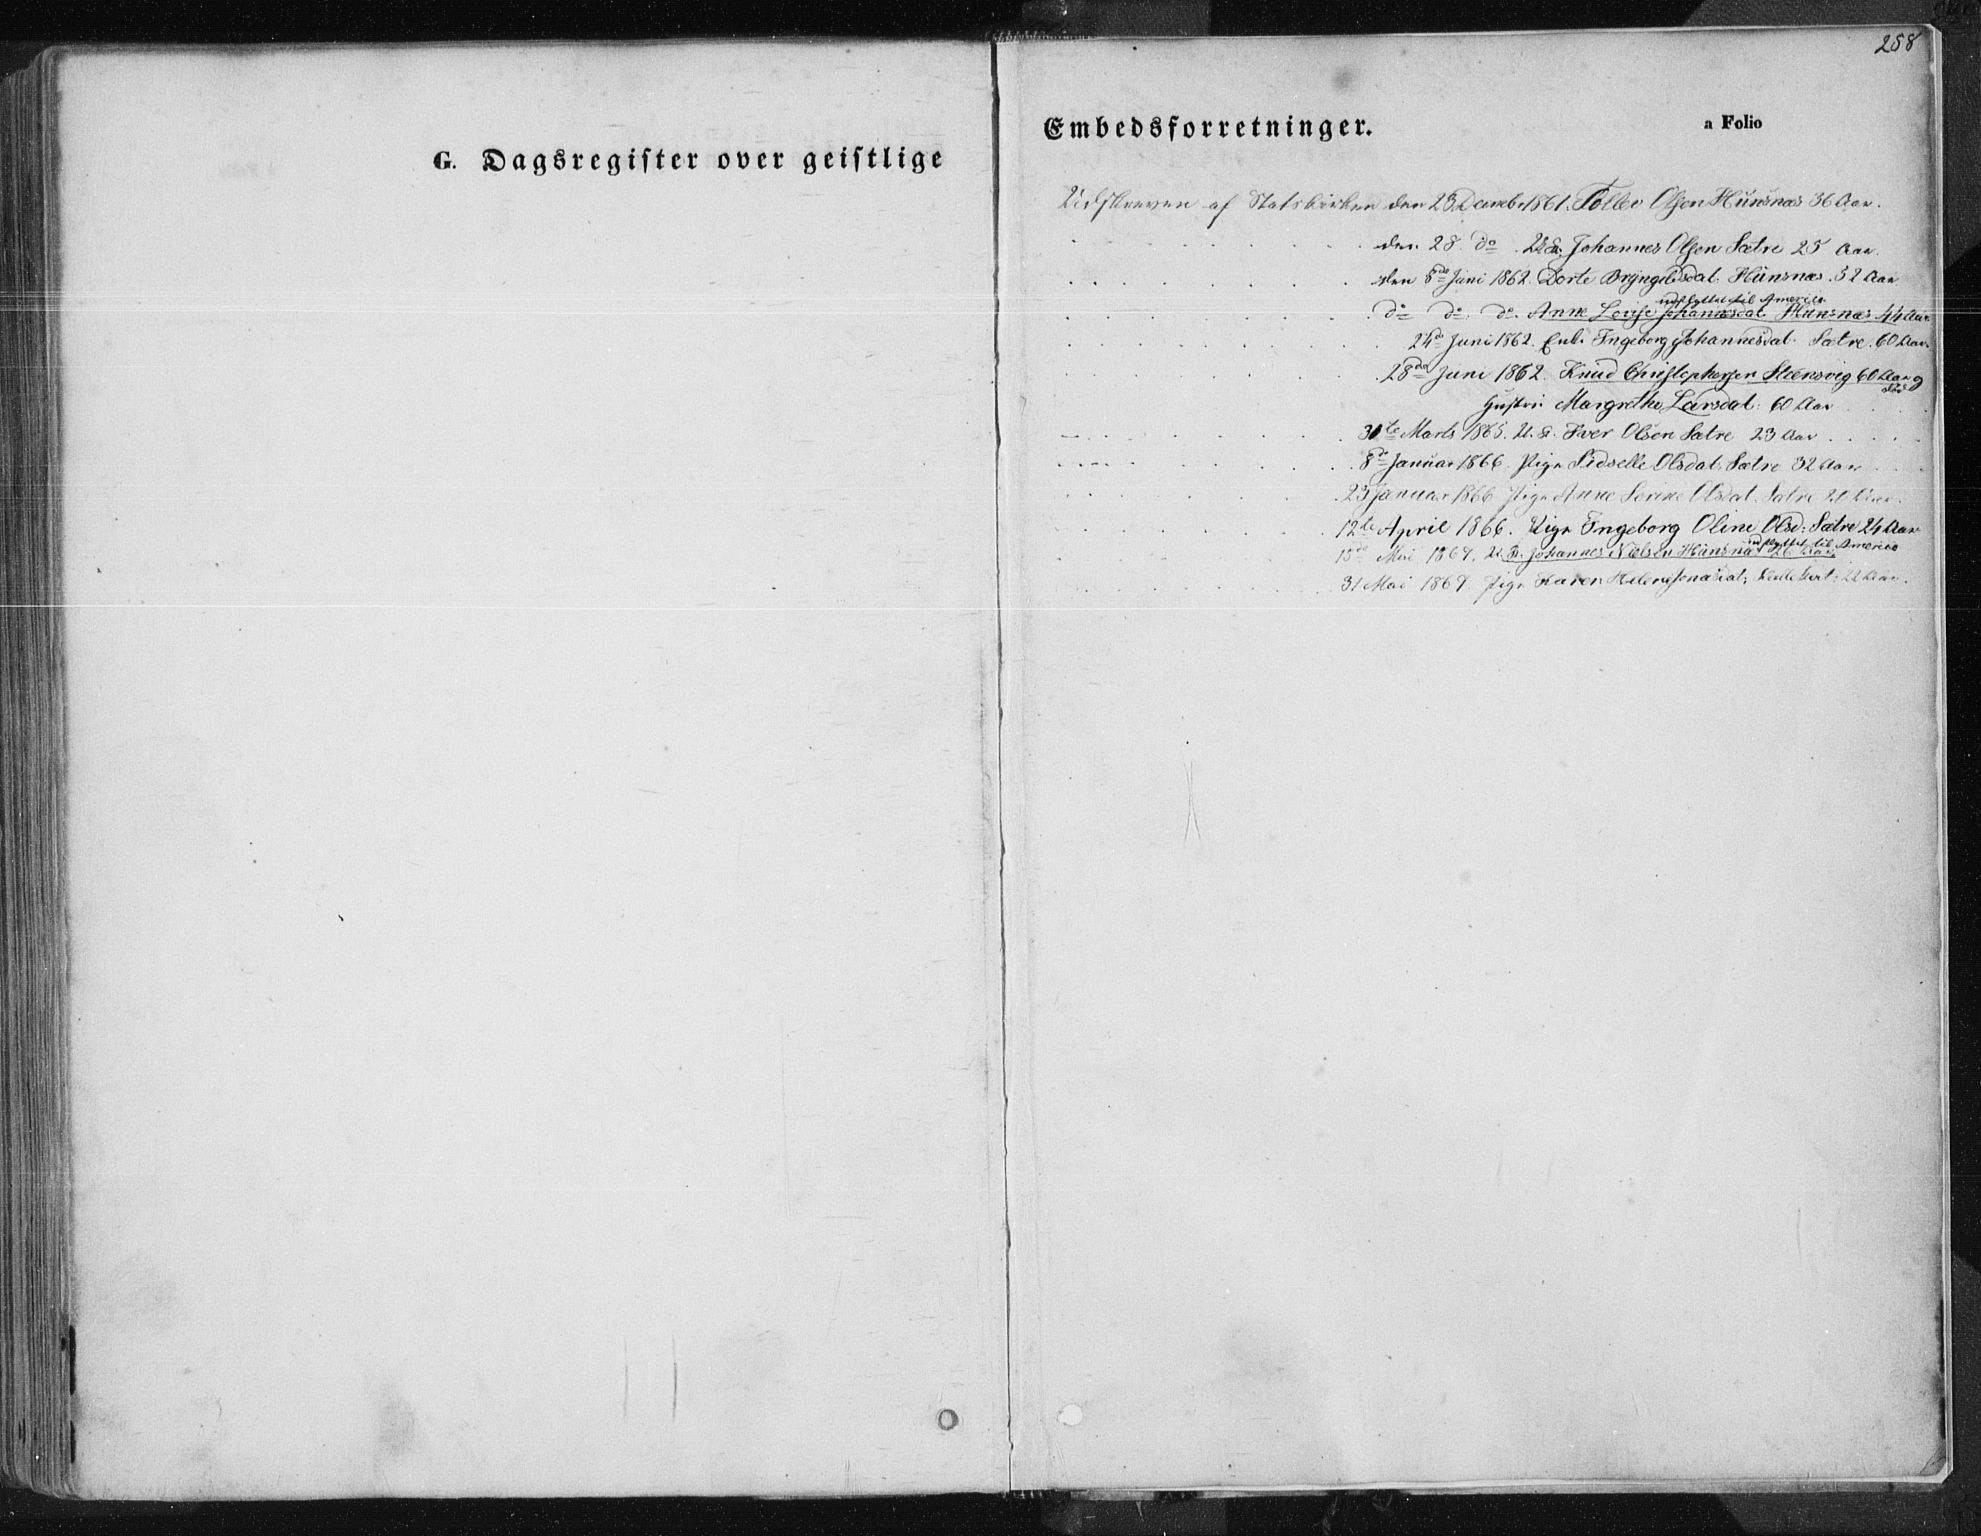 258
G. Dagsregister over geistlige
Embedsforretninger.
a Folio
Udskreven af Statskirken den 23 Decemb. 1861. Tollev Olsen Hunsnæs 36 Aar.
den 28 do U. K. Johannes Olsen Sætre 25 Aar.
den 8de Juni 1862. Dorte Bryngelsdat. Hunsnæs. 52 Aar
udflyttet til America
do do do. Anne Lovise Johannesdat. Hunsnæs 44 Aar.
24de Juni 1862. Enke Ingeborg Johannesdat. Sætre. 60 Aar.
28de Juni 1862. Knud Christophersen 60 Aar og
død
Hustru Margrethe Larsdat. 60 Aar
31te Marts 1865. U. K. Iver Olsen Sætre 23 Aar
8de Januar 1866. Pige Sidselle Olsdat. Sætre 32 Aar
23 Januar 1866 Pige Anne Serine Olsdat. Sætre Aar.
12te April 1866. Pige Ingeborg Oline Olsd: Sætre 24 Aar
udflyttet til America
15de Mai 1867. U. K. Johannes Nielsen Hunsnæs 26 Aar.
31 Mai 1867. Pige Karen Helene Jonasdat: 22 Aar.